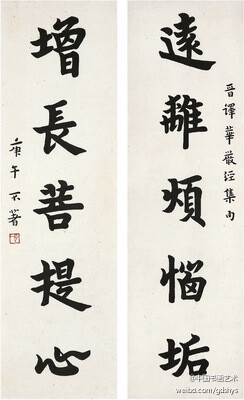 晉譯華嚴經集句
遠離煩惱垢
增長菩提心
庚午 不著
@中国书画艺术
weibo.com/gdshys